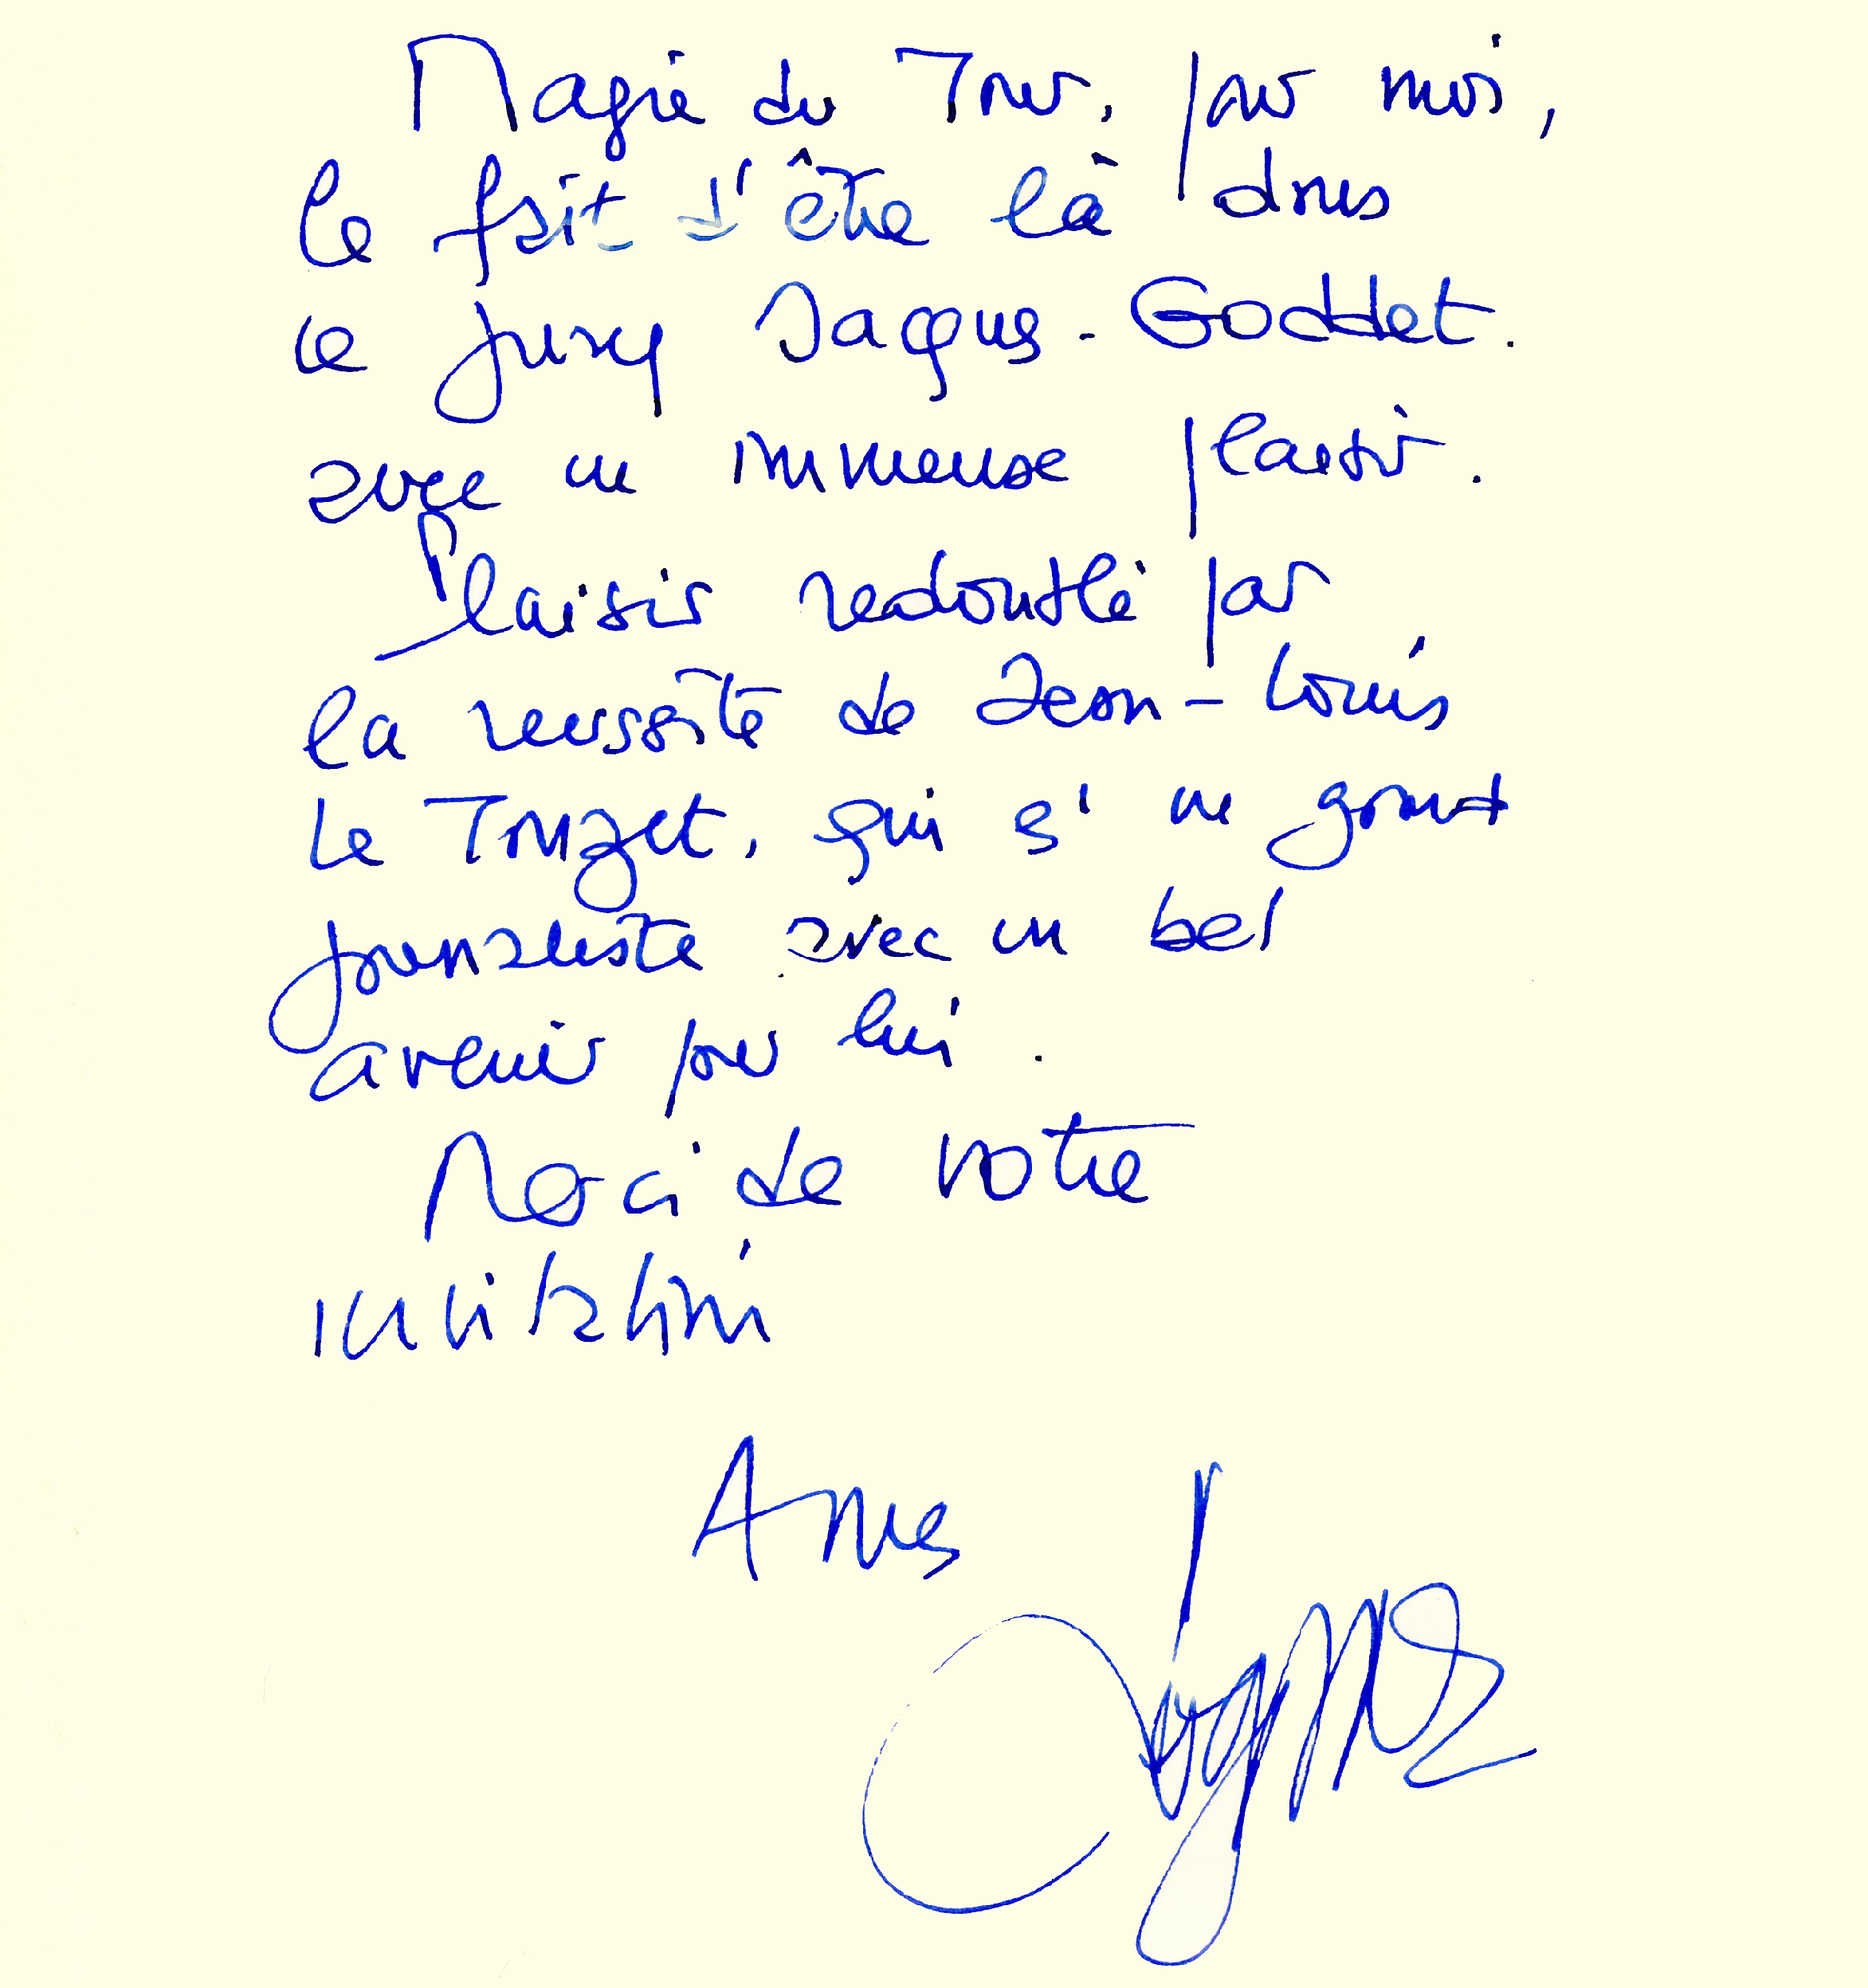 Magie du Tour, pour moi,
le fait d'être là dans
ce jury Jacques-Goddet.
avec un immense plaisir.
Plaisir redoublé par
la réussite de Jean-Louis
Le Touzet, qui s' un grand
journaliste avec un bel
avenir pour lui.
Merci de votre
invitation